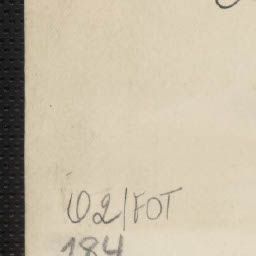 102/FOT
184